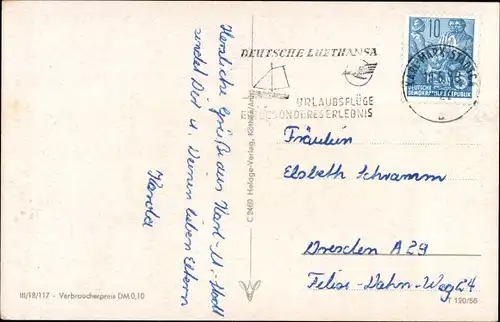 Herzliche Grüße aus Karl-M.-Stadt
sendet Dir u. Deinen lieben Eltern
Harold
C 2469 Heldge-Verlag, Köthen/Anh.
III/18/117 - Verbraucherpreis DM 0,10
DEUTSCHE LUFTHANSA
URLAUBSFLÜGE
EIN BESONDERES ERLEBNIS
10
DEUTSCHE
DEMOKRATISCHE REPUBLIK
KARL-MARX-STADT
b
Fräulein
Elsbeth Schramm
Dresden A 29
Felix-Dahn-Weg 24
T 120/56